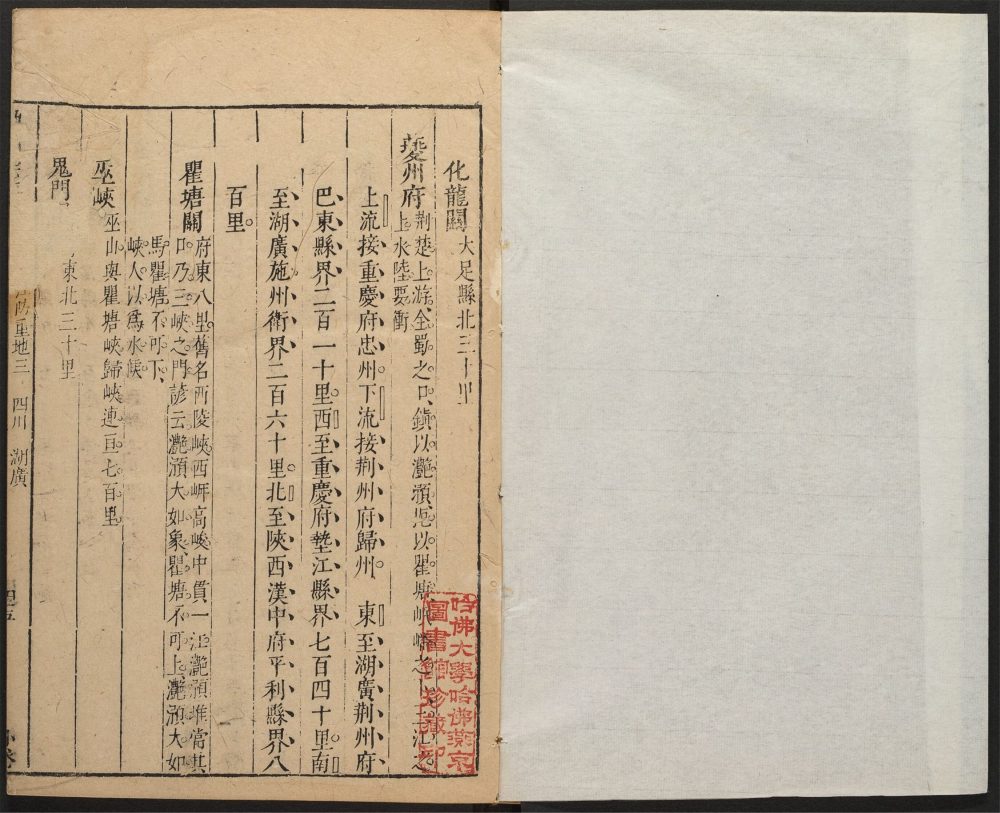 化龍關大足縣北三十里
夔州府
荆楚上游全蜀之口鎮以灩澦扼以瞿塘峽
上水陸要衝
上流接重慶府忠州下流接荆州府歸州 東至湖廣荆州府
巴東縣界二百一十里西至重慶府墊江縣界七百四十里南
至湖廣施州衛界二百六十里北至陝西漢中府平利縣界八
百里
瞿塘關
府東八里舊名西陵峽西岸高峻中貫一江灩澦堆當其
口乃三峽之門諺云灩澦大如象瞿塘不可上灩澦大如
馬瞿塘不可下
峽人以爲水候
巫峽巫山與瞿塘峽歸峽連亘七百里
鬼門
東北三十里
地三 四川 湖廣
哈佛大學哈佛燕京
圖書館珍藏印